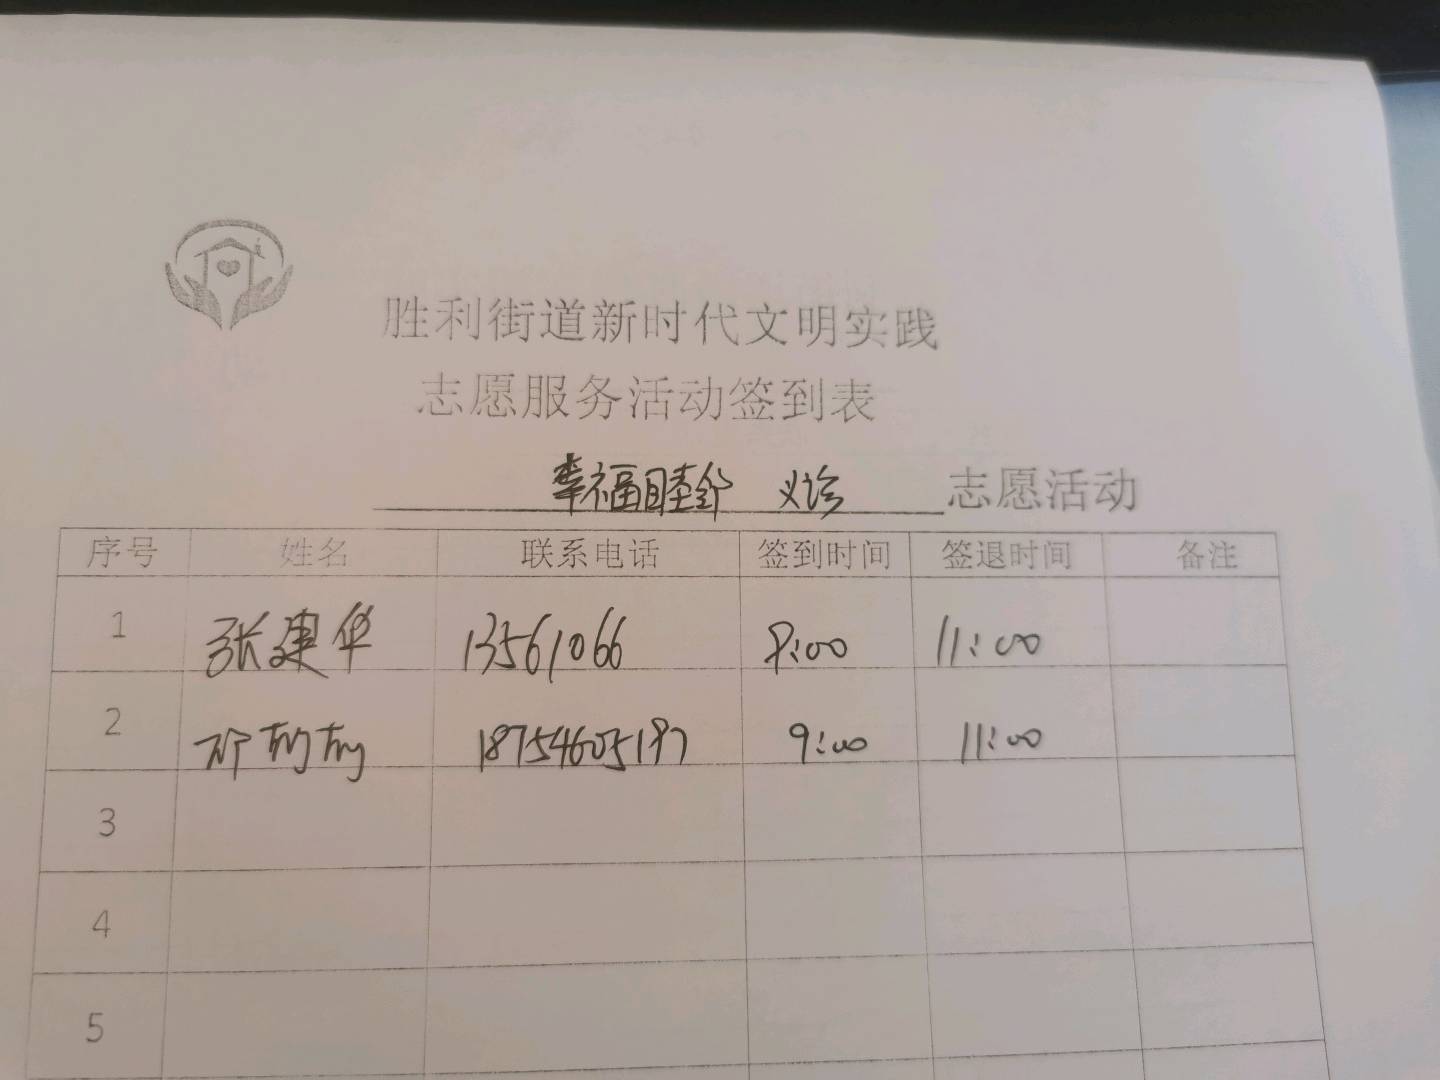 胜利街道新时代文明实践
志愿服务活动签到表
幸福睦邻 义诊 志愿活动
序号 姓名 联系电话 签到时间 签退时间 备注
1 张建华 13561066 8:00 11:00
2 18754605197 9:00 11:00
3
4
5